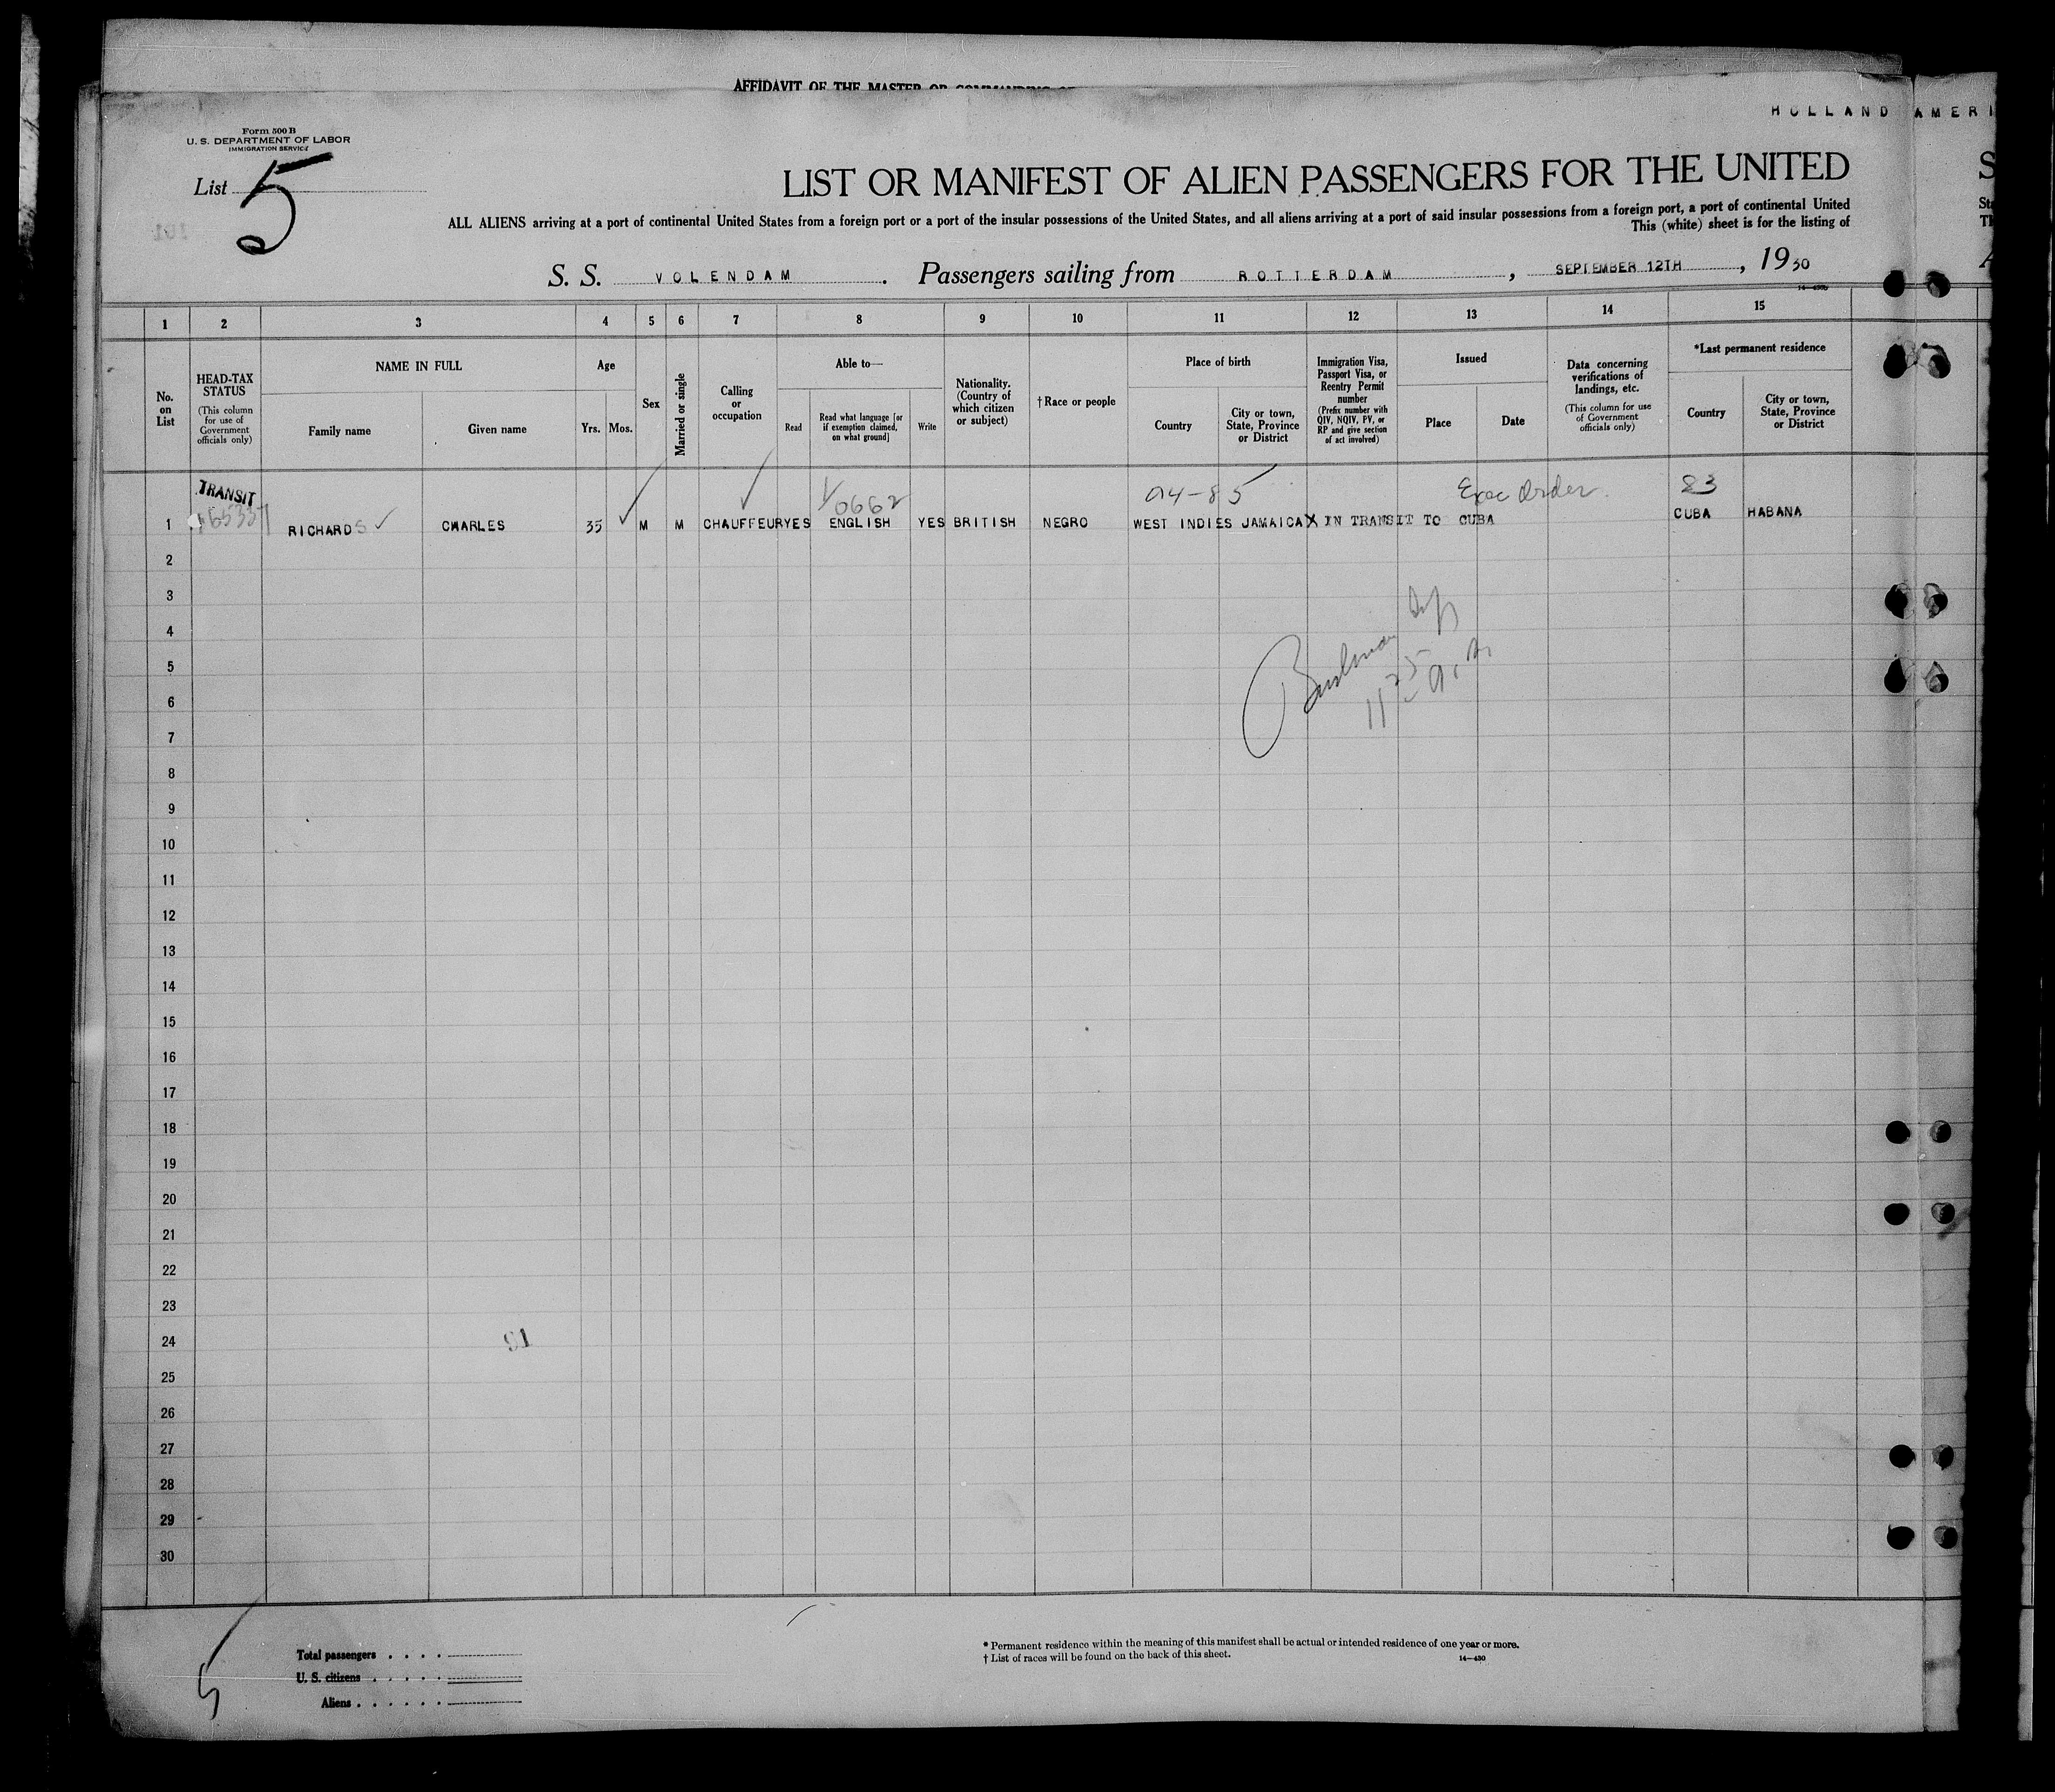 AFFIDAVIT OF THE MASTER OR COMMANDING
HOLLAND AMERI
Form 500 B
U. S. DEPARTMENT OF LABOR
IMMIGRATION SERVICE
List 5
LIST OR MANIFEST OF ALIEN PASSENGERS FOR THE UNITED
S
ALL ALIENS arriving at a port of continental United States from a foreign port or a port of the insular possessions of the United States, and all aliens arriving at a port of said insular possessions from a foreign port, a port of continental United
Sta
This (white) sheet is for the listing of
Th
S. S. VOLENDAM. Passengers sailing from ROTTERDAM, SEPTEMBER 12TH, 1930
1 2 3 4 5 6 7 8 9 10 11 12 13 14 15
No. on List
HEAD-TAX STATUS
(This column for use of Government officials only)
NAME IN FULL
Family name
Given name
Age
Yrs. Mos.
Sex
Married or single
Calling or occupation
Able to—
Read
Read what language [or if exemption claimed, on what ground]
Write
Nationality. (Country of which citizen or subject)
†Race or people
Place of birth
Country
City or town, State, Province or District
Immigration Visa, Passport Visa, or Reentry Permit number
(Prefix number with QIV, NQIV, PV, or RP and give section of act involved)
Issued
Place
Date
Data concerning verifications of landings, etc.
(This column for use of Government officials only)
*Last permanent residence
Country
City or town, State, Province or District
TRANSIT
94-85 Exec Order. 83
1 RICHARDS CHARLES 35 M M CHAUFFEUR YES ENGLISH YES BRITISH NEGRO WEST INDIES JAMAICA X IN TRANSIT TO CUBA CUBA HABANA
2
3
4
5
6
7
8
9
10
11
12
13
14
15
16
17
18
19
20
21
22
23
24
25
26
27
28
29
30
Total passengers
U. S. citizens
Aliens
* Permanent residence within the meaning of this manifest shall be actual or intended residence of one year or more.
† List of races will be found on the back of this sheet.
14—430
5